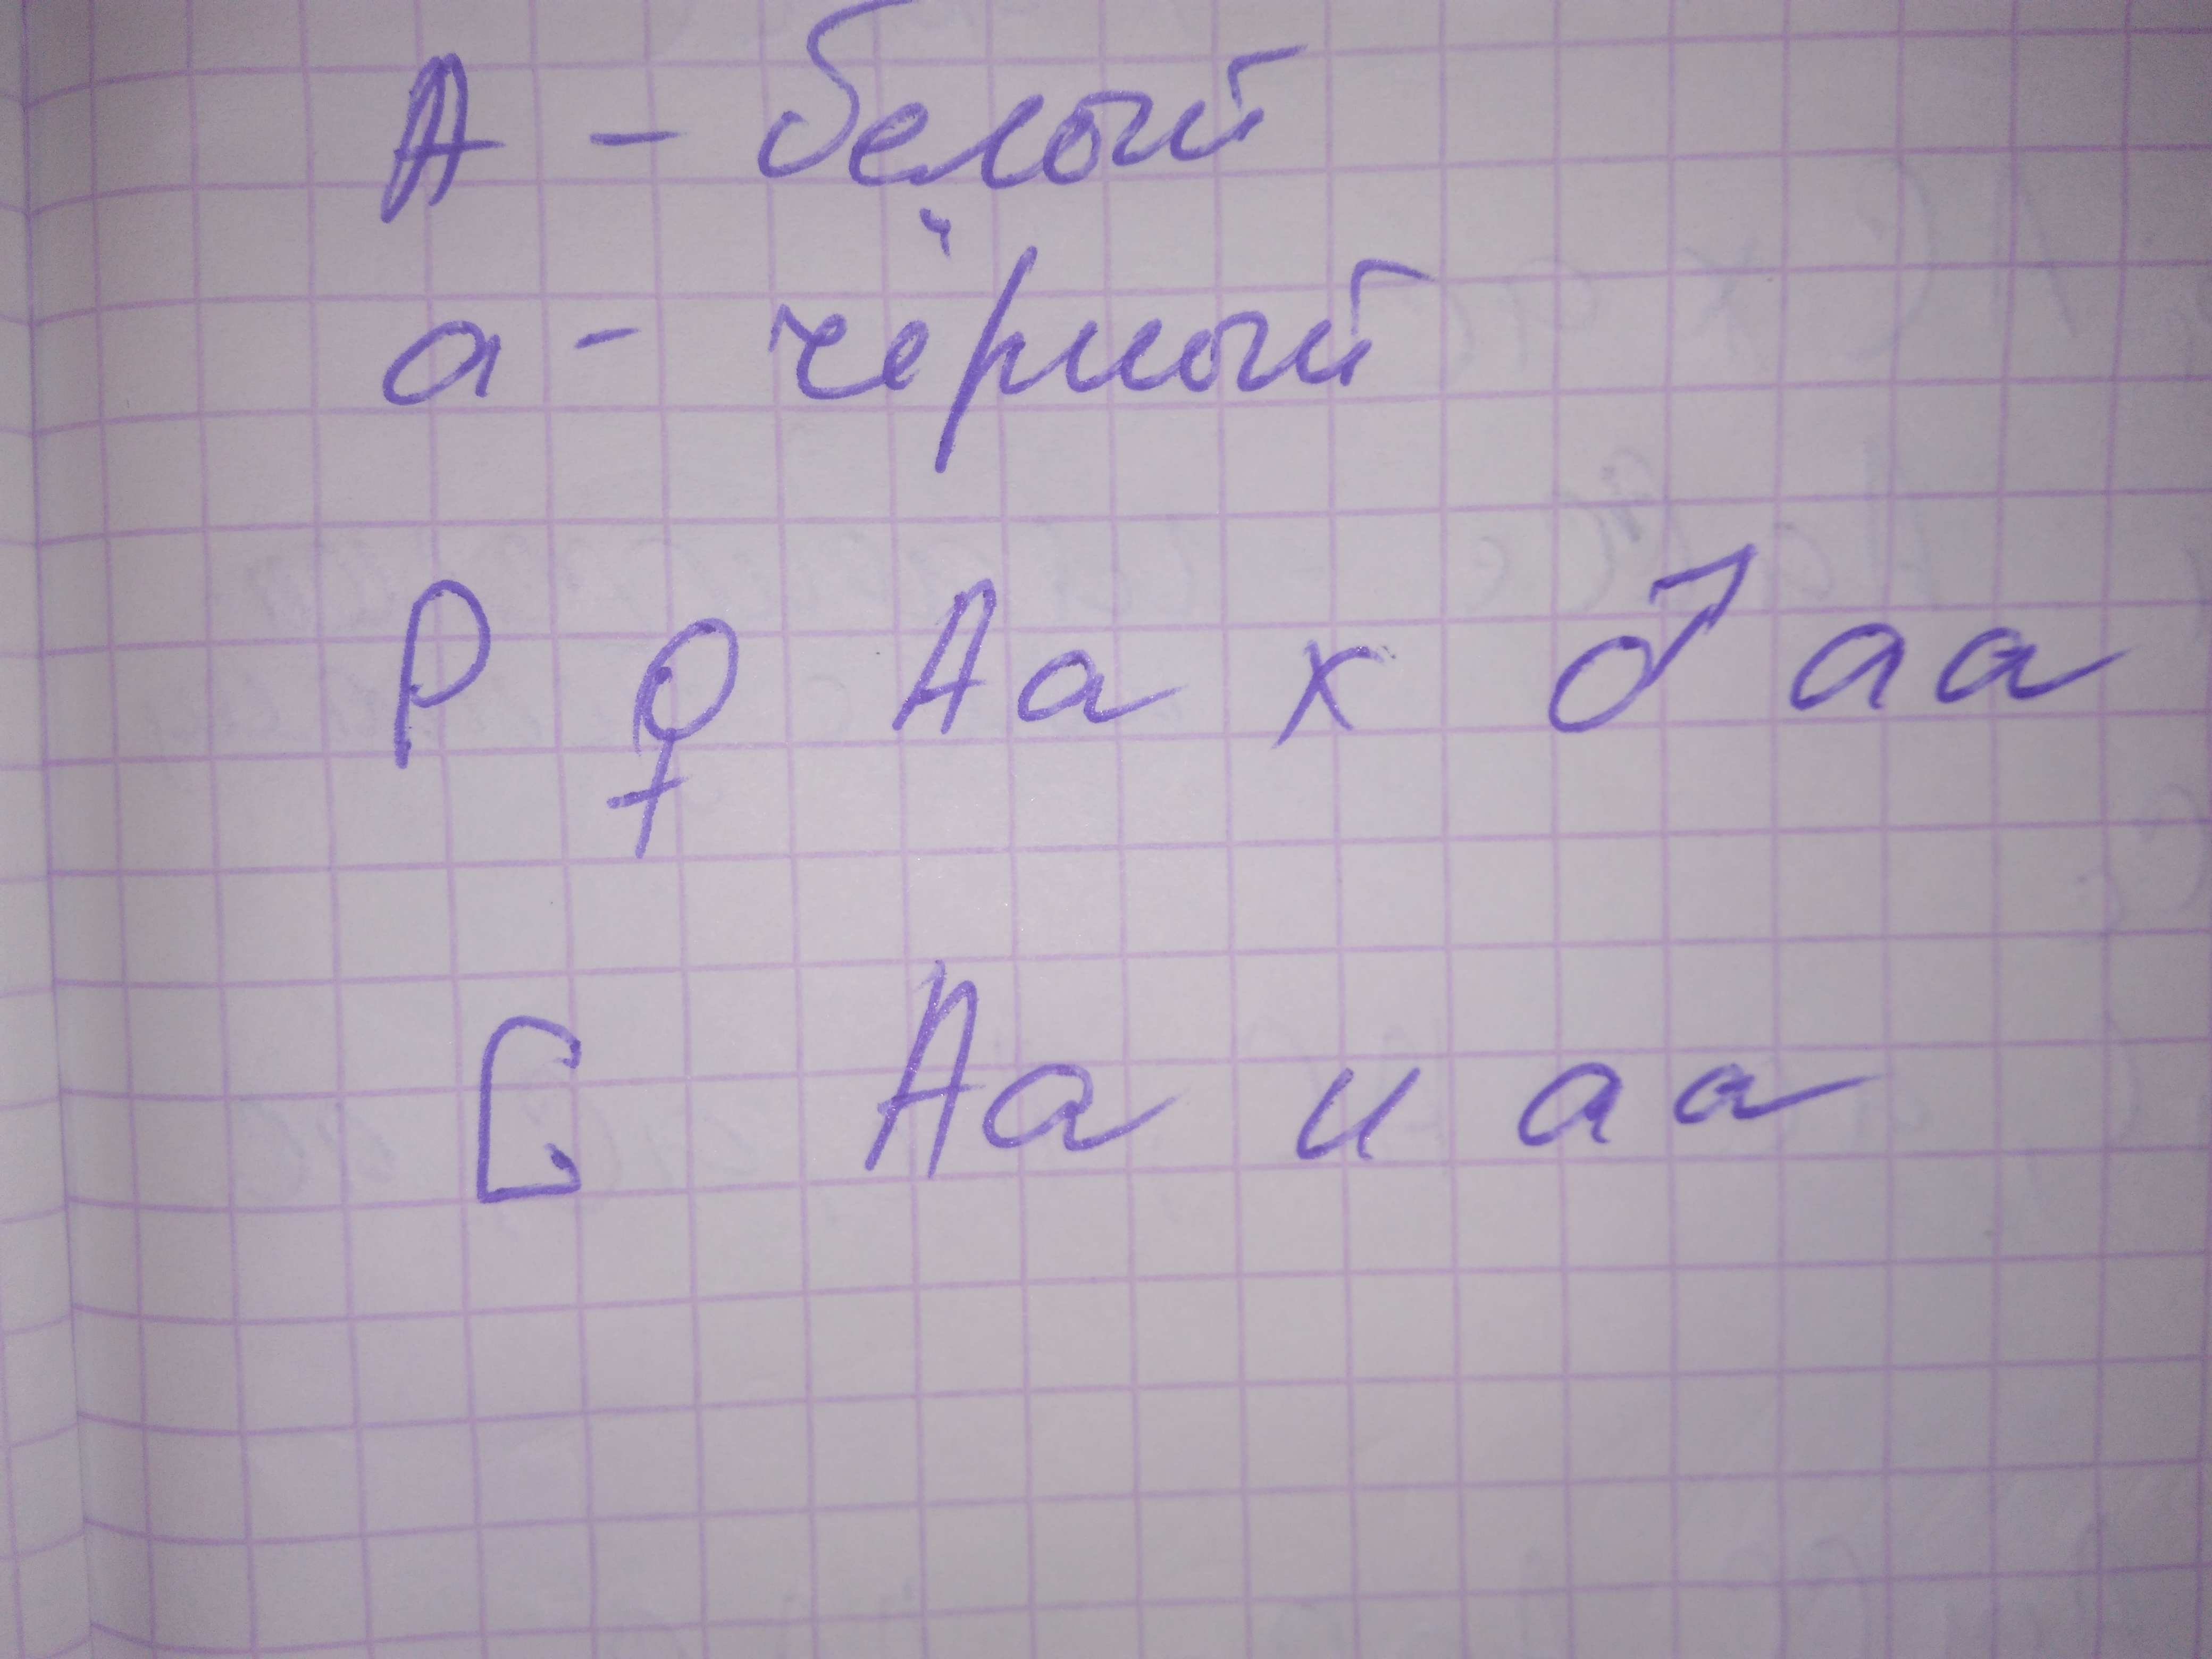 A - белый
a - чёрный
P ♀ Aa x ♂ aa
G Aa и aa